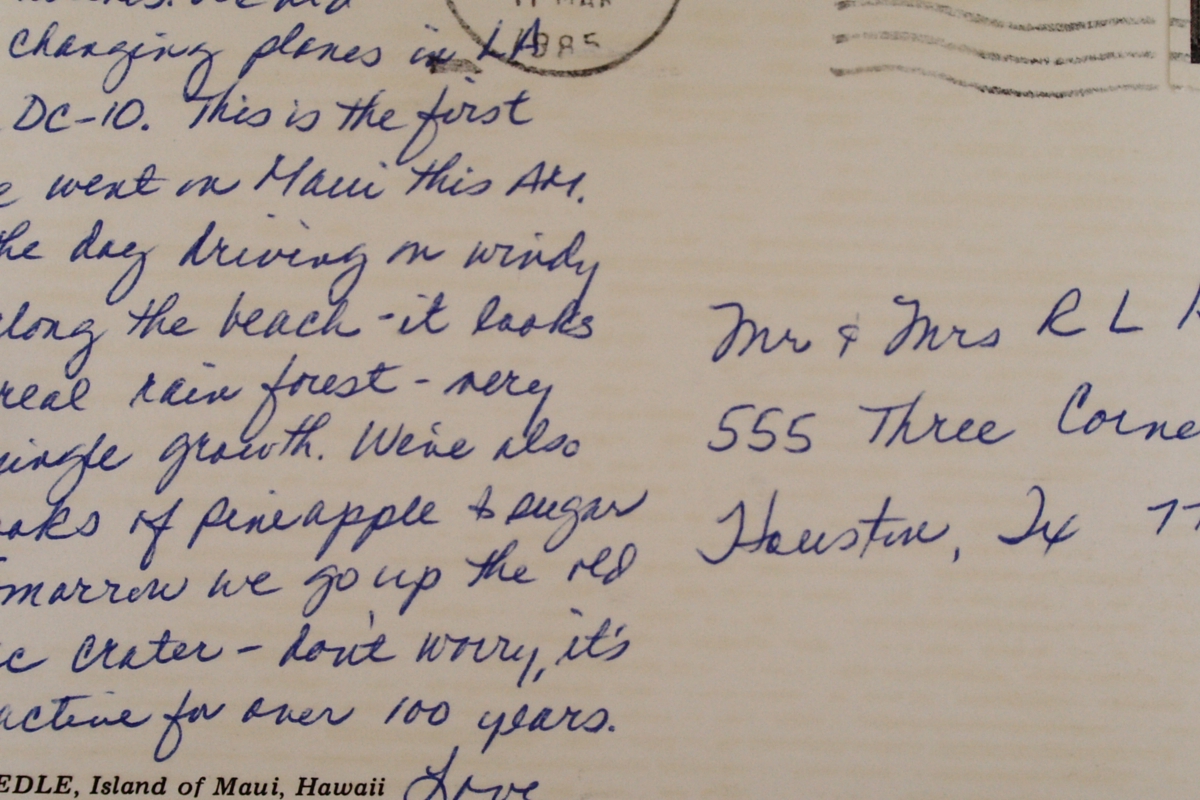 changing planes in LA
DC-10. This is the first
went on Maui this AM.
the day driving on windy
along the beach - it looks
real rain forest - very
jungle growth. We've also
of pineapple & sugar
omorrow we go up the old
ic crater - don't worry, it's
active for over 100 years.
Love
EDLE, Island of Maui, Hawaii
11 MAR
1985
Mr & Mrs R L
555 Three Corne
Houston, Tx 77